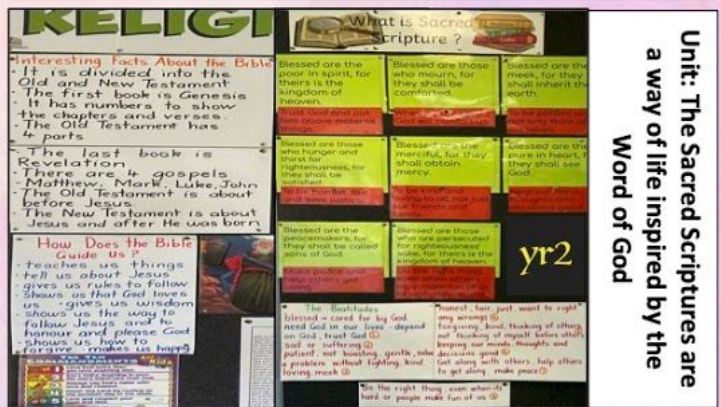 RELIGI
What is Sacred
Scripture ?
Interesting Facts About the Bible
- It is divided into the
Old and New Testament
- The first book is Genesis
- It has numbers to show
the chapters and verses.
- The Old Testament has
4 parts
- The last book is
Revelation
- There are 4 gospels
- Matthew, Mark, Luke, John
- The Old Testament is about
before Jesus
- The New Testament is about
Jesus and after He was born
How Does the Bible
Guide us ?
- teaches us things
- tell us about Jesus
- gives us rules to follow
- shows us that God loves
us - gives us wisdom
- shows us the way to
follow Jesus and to
honour and please God
- shows us how to
forgive - makes us happy
Blessed are the
poor in spirit, for
theirs is the
kingdom of
heaven.
Trust God and put
him above material
things.
Blessed are those
who mourn, for
they shall be
comforted.
Blessed are the
meek, for they
shall inherit the
earth.
Blessed are those
who hunger and
thirst for
righteousness, for
they shall be
satisfied.
and seek justice.
Blessed are the
merciful, for they
shall obtain
mercy.
To be kind and
loving to all, not just
our friends and
family.
Blessed are the
pure in heart, for
they shall see
God.
Blessed are the
peacemakers, for
they shall be called
sons of God.
Make peace and
help others get
along.
Blessed are those
who are persecuted
for righteousness'
sake, for theirs is the
kingdom of heaven.
Do the right thing
yr2
The Beatitudes
blessed → cared for by God
need God in our lives - depend
on God, trust God ①
sad or suffering ②
patient, not boasting, gentle, solve
a problem without fighting, kind
loving, meek ③
honest, fair, just, want to right
any wrongs ④
forgiving, kind, thinking of others,
not thinking of myself before others
keeping our minds, thoughts and
decisions good ⑥
Get along with others, help others
to get along, make peace ⑦
Do the right thing, even when its
hard or people make fun of us ⑧
Unit: The Sacred Scriptures are
a way of life inspired by the
Word of God